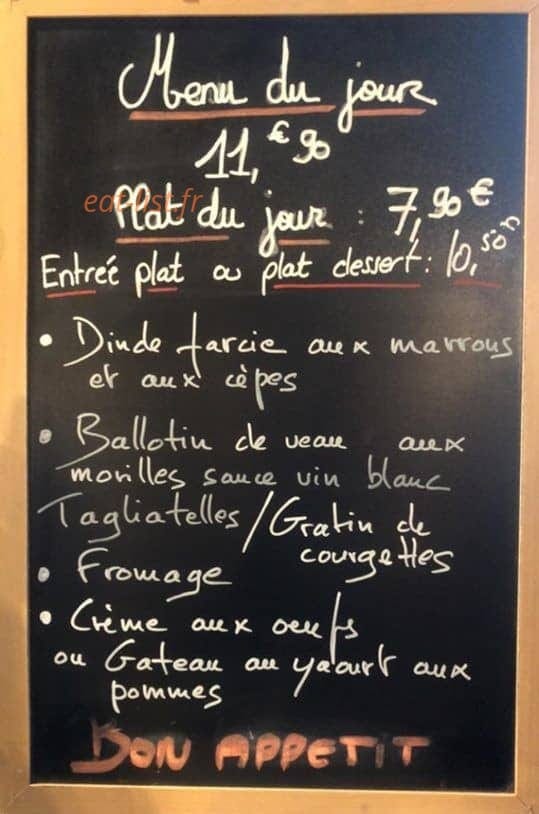 Menu du jour
11,€90
eat-list.fr
Plat du jour : 7,90€
Entreé plat ou plat dessert : 10,50
• Dinde farcie aux marrons
et aux cèpes
• Ballotin de veau aux
morilles sauce vin blanc
Tagliatelles / Gratin de
courgettes
• Fromage
• Crème aux oeufs
ou Gateau au yaourt aux
pommes
BON APPETIT